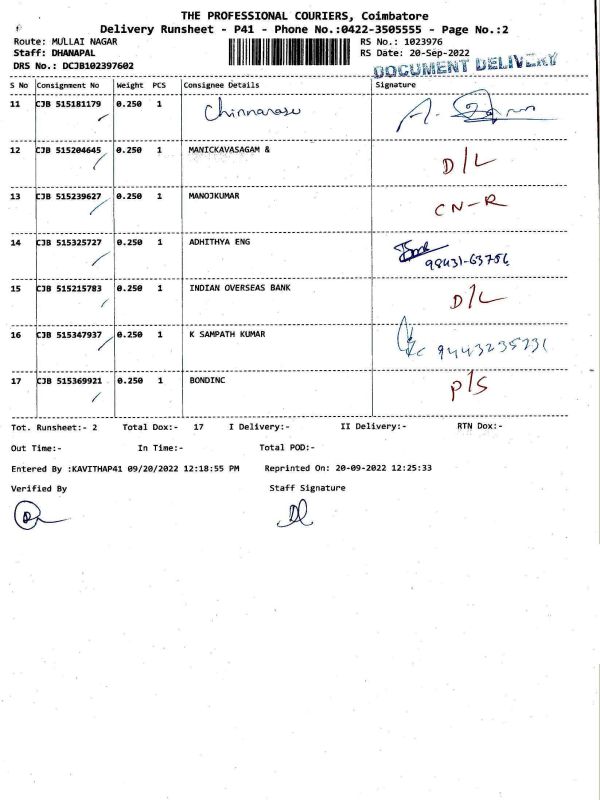 THE PROFESSIONAL COURIERS, Coimbatore
Delivery Runsheet - P41 - Phone No.:0422-3505555 - Page No.:2
Route: MULLAI NAGAR RS No.: 1023976
Staff: DHANAPAL RS Date: 20-Sep-2022
DRS No.: DCJB102397602 DOCUMENT DELIVERY
S No Consignment No Weight PCS Consignee Details Signature
11 CJB 515181179 0.250 1 Chinnarasu
12 CJB 515204645 0.250 1 MANICKAVASAGAM & D/L
13 CJB 515239627 0.250 1 MANOJKUMAR CN-R
14 CJB 515325727 0.250 1 ADHITHYA ENG 98431-63756
15 CJB 515215783 0.250 1 INDIAN OVERSEAS BANK D/L
16 CJB 515347937 0.250 1 K SAMPATH KUMAR 9443235231
17 CJB 515369921 0.250 1 BONDINC P/S
Tot. Runsheet:- 2 Total Dox:- 17 I Delivery:- II Delivery:- RTN Dox:-
Out Time:- In Time:- Total POD:-
Entered By :KAVITHAP41 09/20/2022 12:18:55 PM Reprinted On: 20-09-2022 12:25:33
Verified By Staff Signature